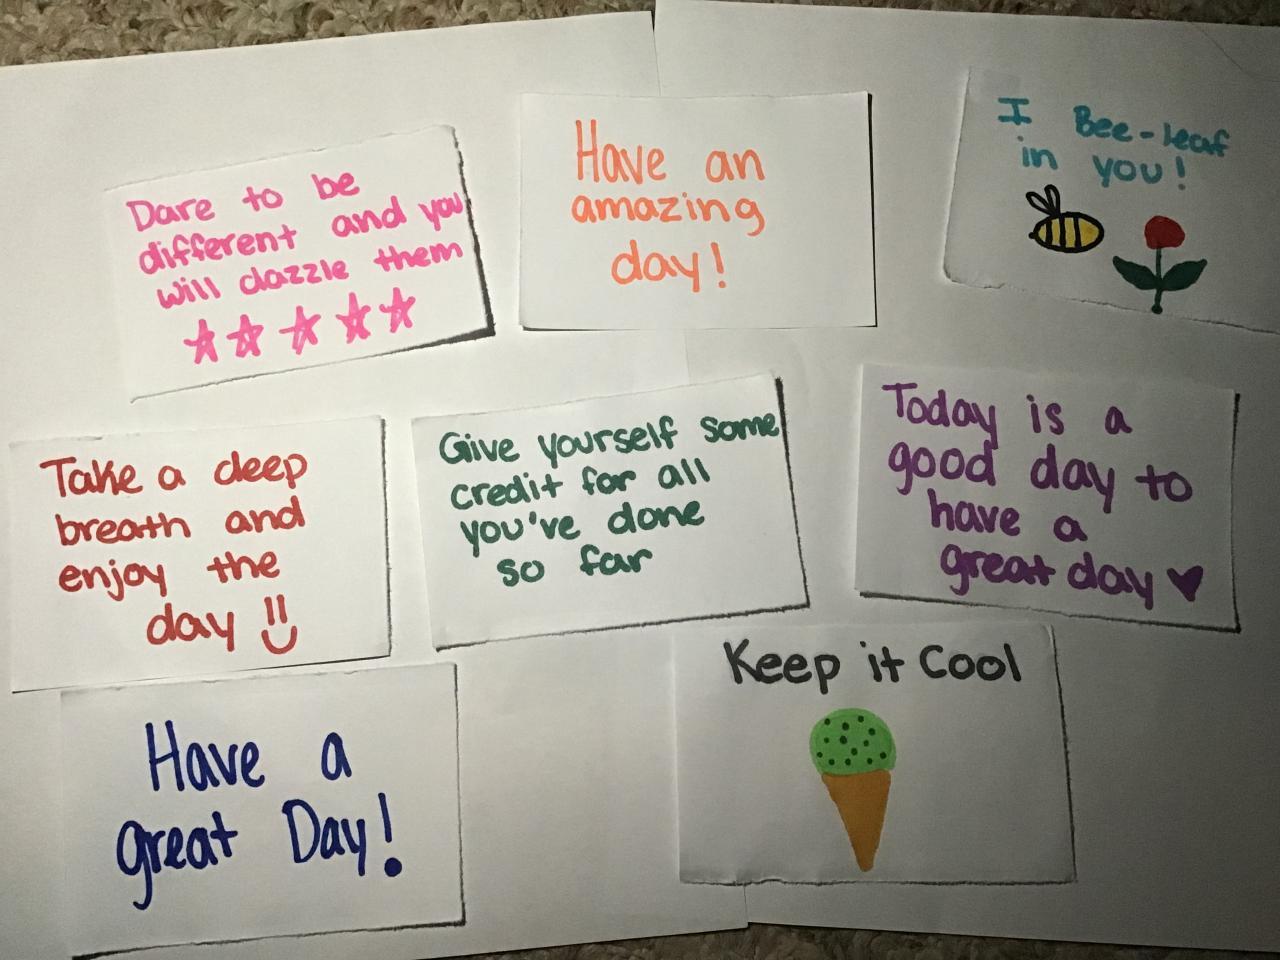 Dare to be
different and you
will dazzle them
Have an
amazing
day!
I Bee-leaf
in you!
Take a deep
breath and
enjoy the
day
Give yourself some
credit for all
you've done
so far
Today is a
good day to
have a
great day
Have a
great Day!
Keep it Cool